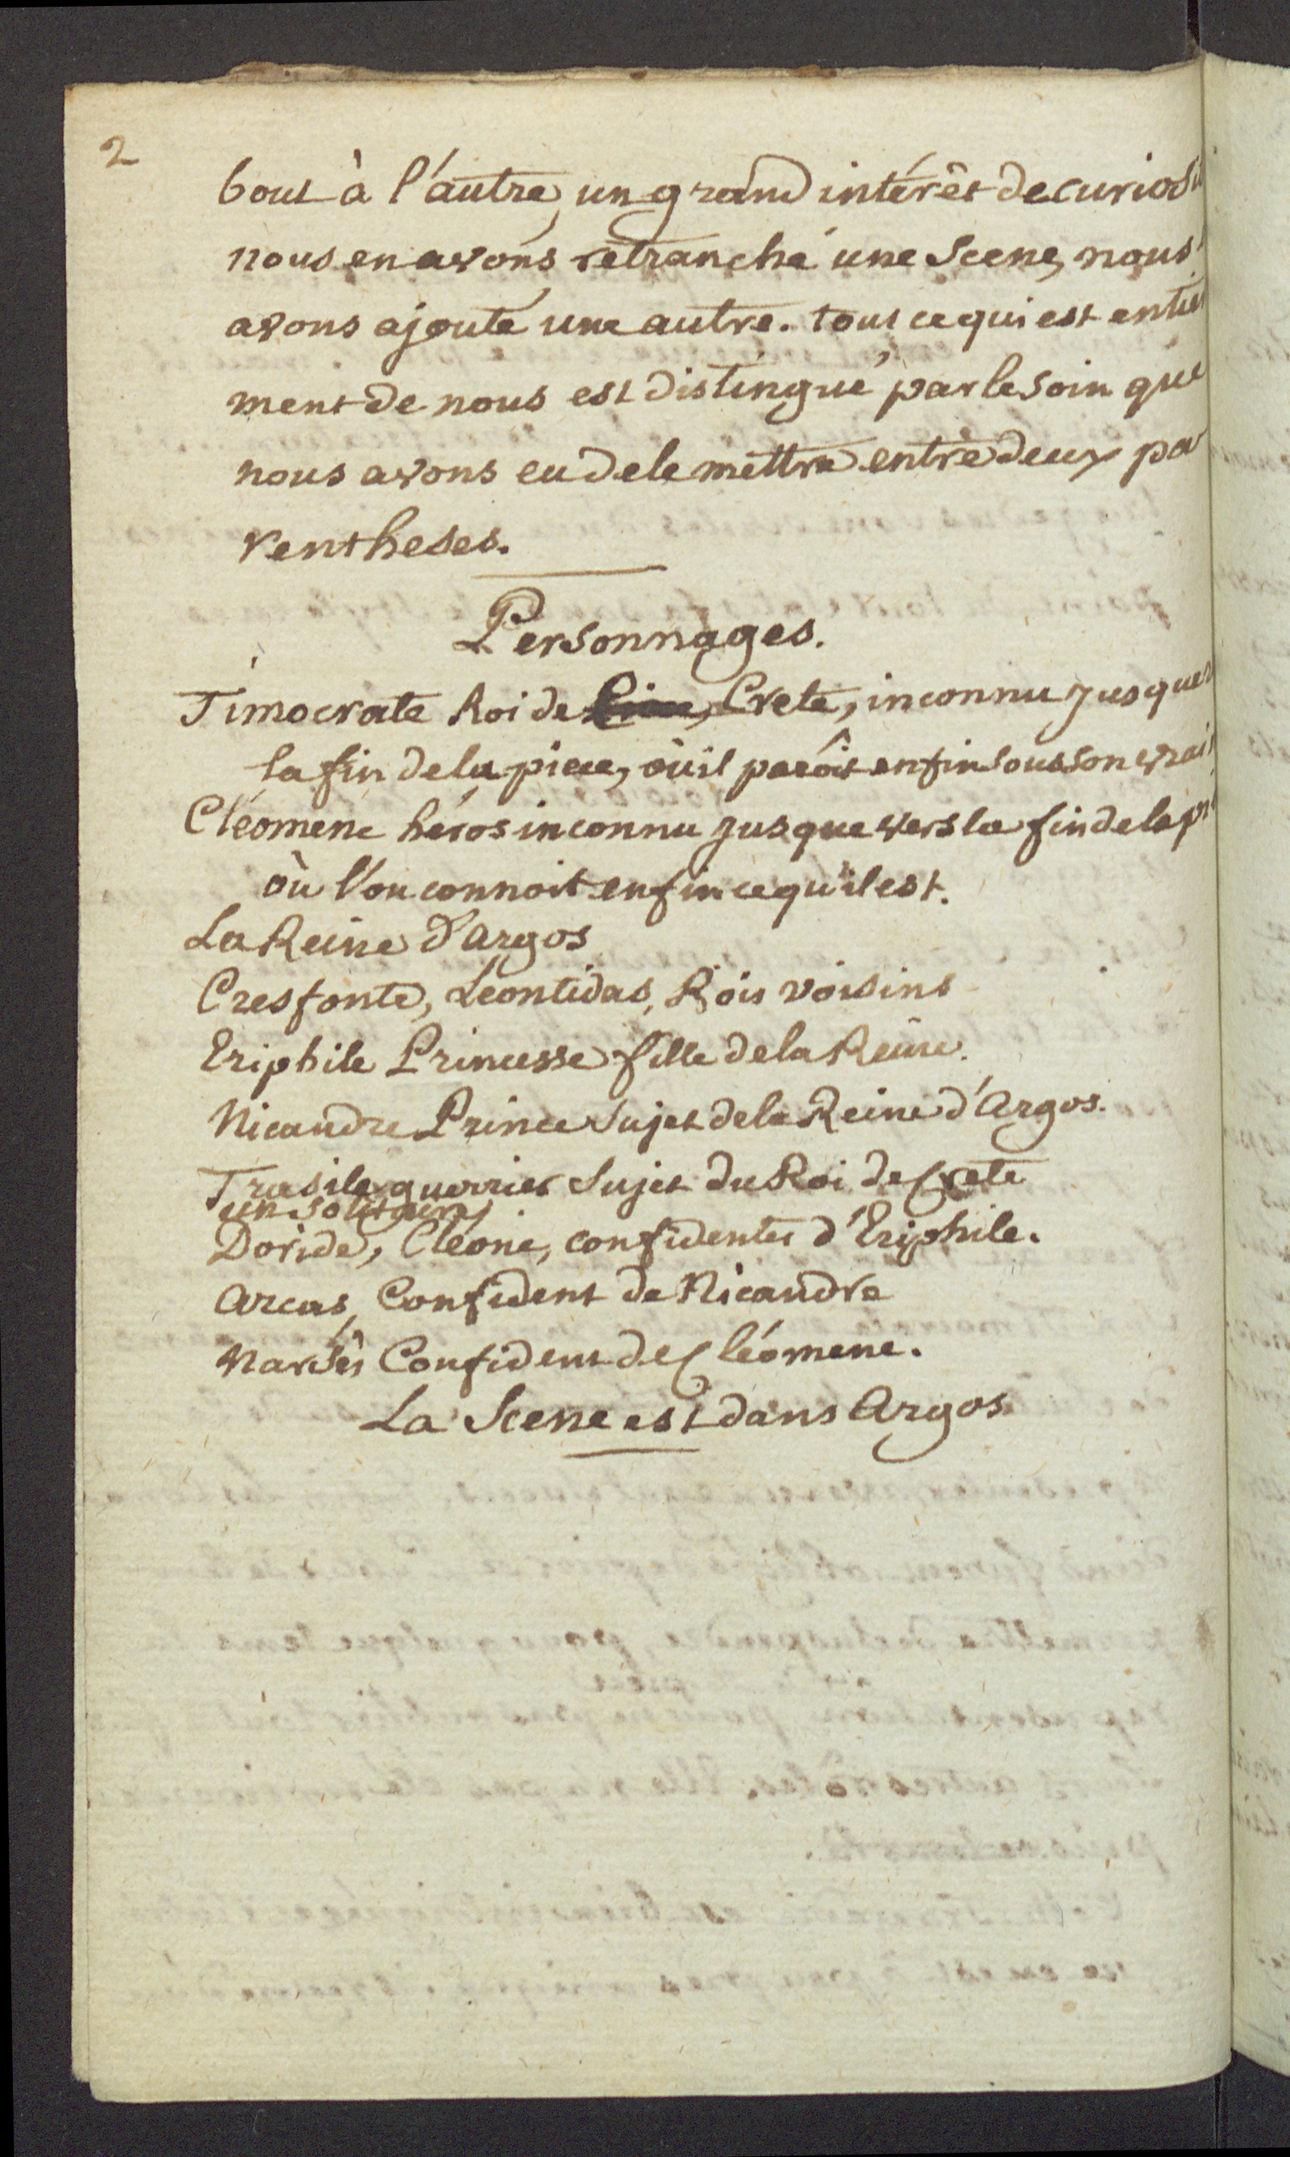 2
bout à l'autre, un grand intérêt de curiosi
nous en avons retranché une Scene, nous
avons ajouté une autre. tout ce qui est entie
ment de nous est distingué par le soin que
nous avons eu de le mettre entre deux pa
rentheses.
Personnages.
Timocrate Roi de Crete, inconnu jusques
la fin de la piece, où il paroît enfin sous son vrai
Cléomene héros inconnu jusque vers la fin de la pi
où l'on connoit enfin ce qu'il est.
La Reine d'Argos
Cresfonte, Léontidas, Rois voisins
Eriphile Princesse fille de la Reine.
Nicandre Prince Sujet de la Reine d'Argos.
Trasile guerrier Sujet du Roi de Crete
un Solitaire
Doride, Cléone, confidentes d'Eriphile.
Arcas, Confident de Nicandre
Narsès Confident de Cléomene.
La Scene est dans Argos